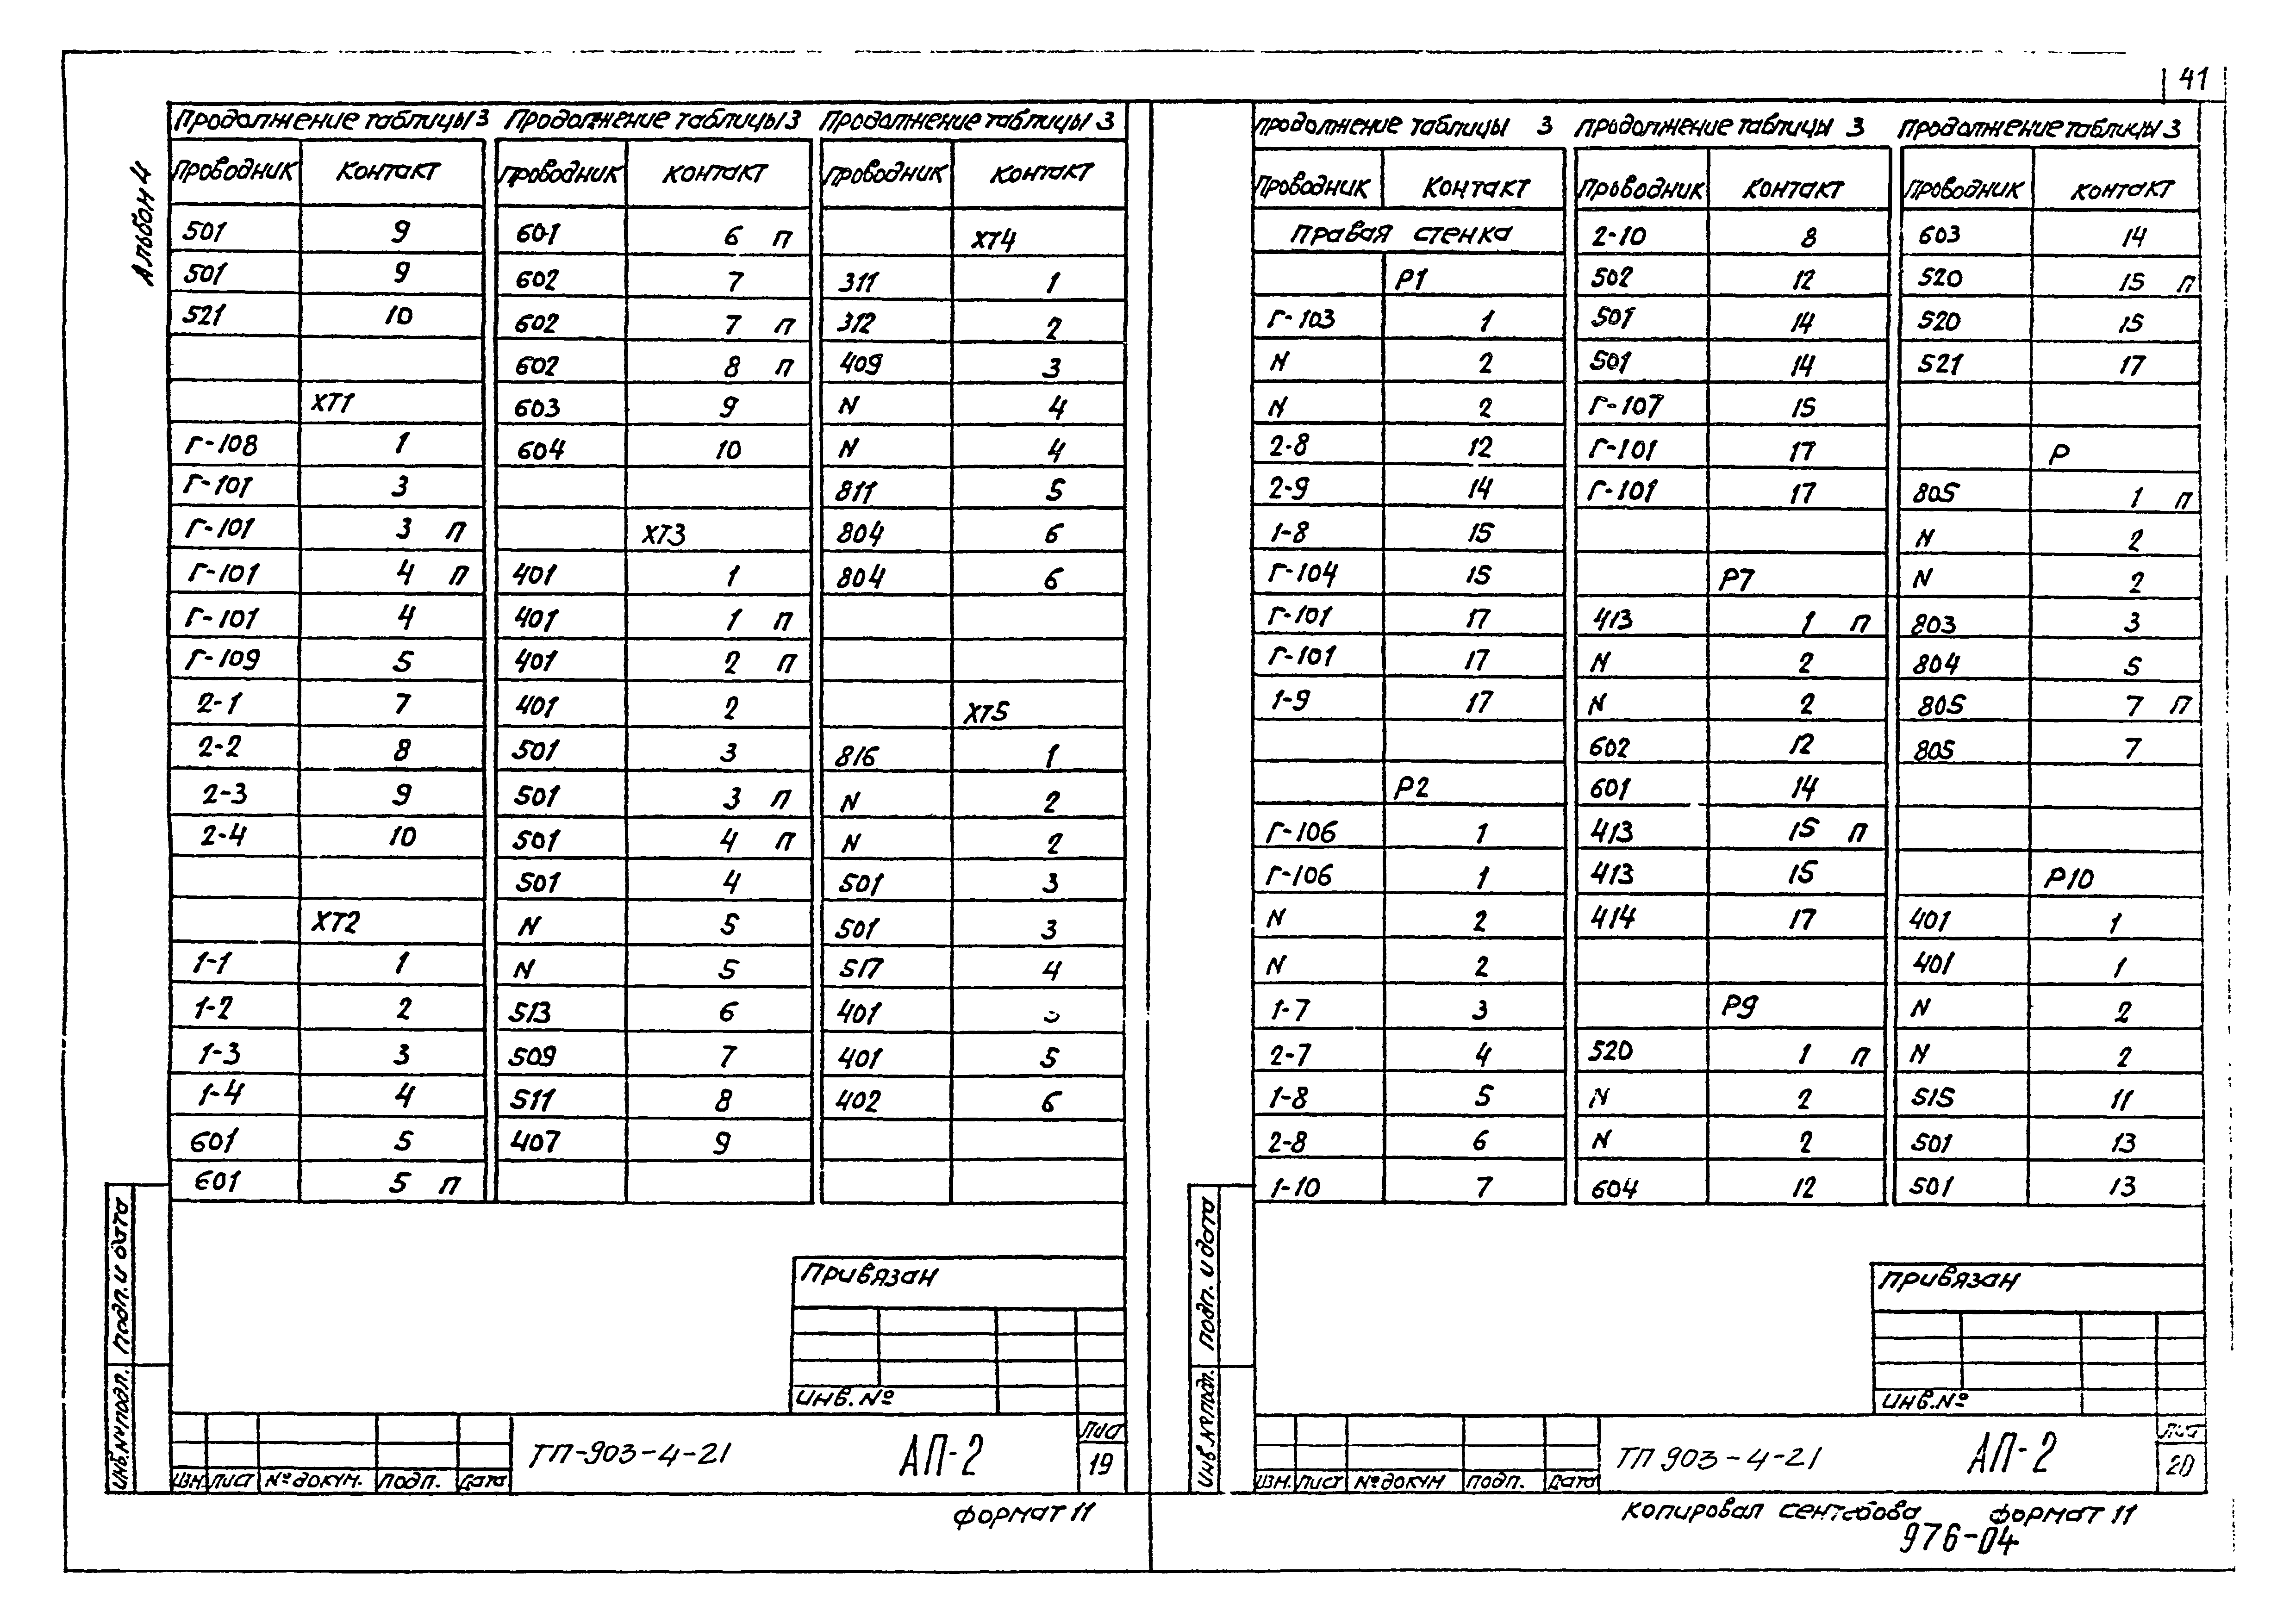 41
Альбом 4
Продолжение таблицы 3
Проводник Контакт
501 9
501 9
521 10
ХТ1
Г-108 1
Г-101 3
Г-101 3 П
Г-101 4 П
Г-101 4
Г-109 5
2-1 7
2-2 8
2-3 9
2-4 10
ХТ2
1-1 1
1-2 2
1-3 3
1-4 4
601 5
601 5 П
Продолжение таблицы 3
Проводник Контакт
601 6 П
602 7
602 7 П
602 8 П
603 9
604 10
ХТ3
401 1
401 1 П
401 2 П
401 2
501 3
501 3 П
501 4 П
501 4
N 5
N 5
513 6
509 7
511 8
407 9
Продолжение таблицы 3
Проводник Контакт
ХТ4
311 1
312 2
409 3
N 4
N 4
811 5
804 6
804 6
ХТ5
816 1
N 2
N 2
501 3
501 3
517 4
401
401 5
402 6
Привязан
Инв. №
Инв. № подл. Подп. и дата
Изм. Лист № докум. Подп. Дата
ТП-903-4-21
АП-2
Лист
19
Формат 11
Продолжение таблицы 3
Проводник Контакт
Правая стенка
Р1
Г-103 1
N 2
N 2
2-8 12
2-9 14
1-8 15
Г-104 15
Г-101 17
Г-101 17
1-9 17
Р2
Г-106 1
Г-106 1
N 2
N 2
1-7 3
2-7 4
1-8 5
2-8 6
1-10 7
Продолжение таблицы 3
Проводник Контакт
2-10 8
502 12
501 14
501 14
Г-107 15
Г-101 17
Г-101 17
Р7
413 1 П
N 2
N 2
602 12
601 14
413 15 П
413 15
414 17
Р9
520 1 П
N 2
N 2
604 12
Продолжение таблицы 3
Проводник Контакт
603 14
520 15 П
520 15
521 17
Р
805 1 П
N 2
N 2
803 3
804 5
805 7 П
805 7
Р10
401 1
401 1
N 2
N 2
515 11
501 13
501 13
Привязан
Инв. №
Инв. № подл. Подп. и дата
Изм. Лист № докум Подп. Дата
ТП 903-4-21
АП-2
Лист
20
Копировал Формат 11
976-04